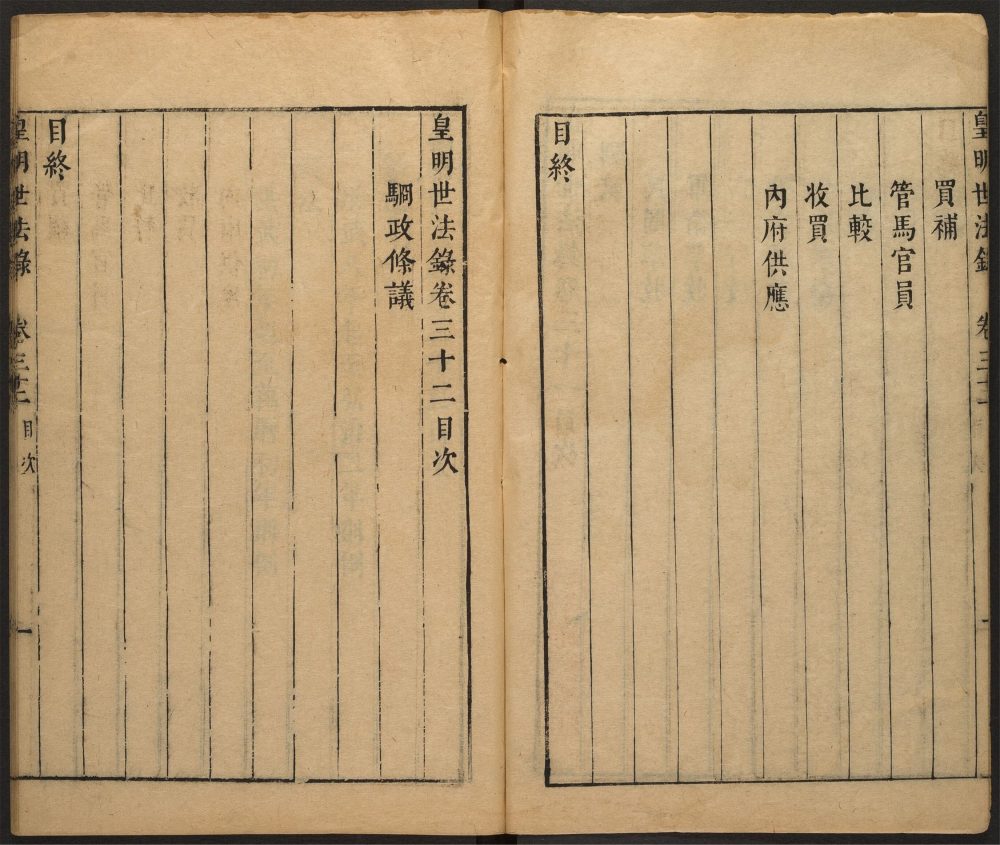 皇明世法錄 卷三十
買補
管馬官員
比較
收買
內府供應
目終
皇明世法錄卷三十二目次
駉政條議
目終
皇明世法錄 卷三十二 目次 一